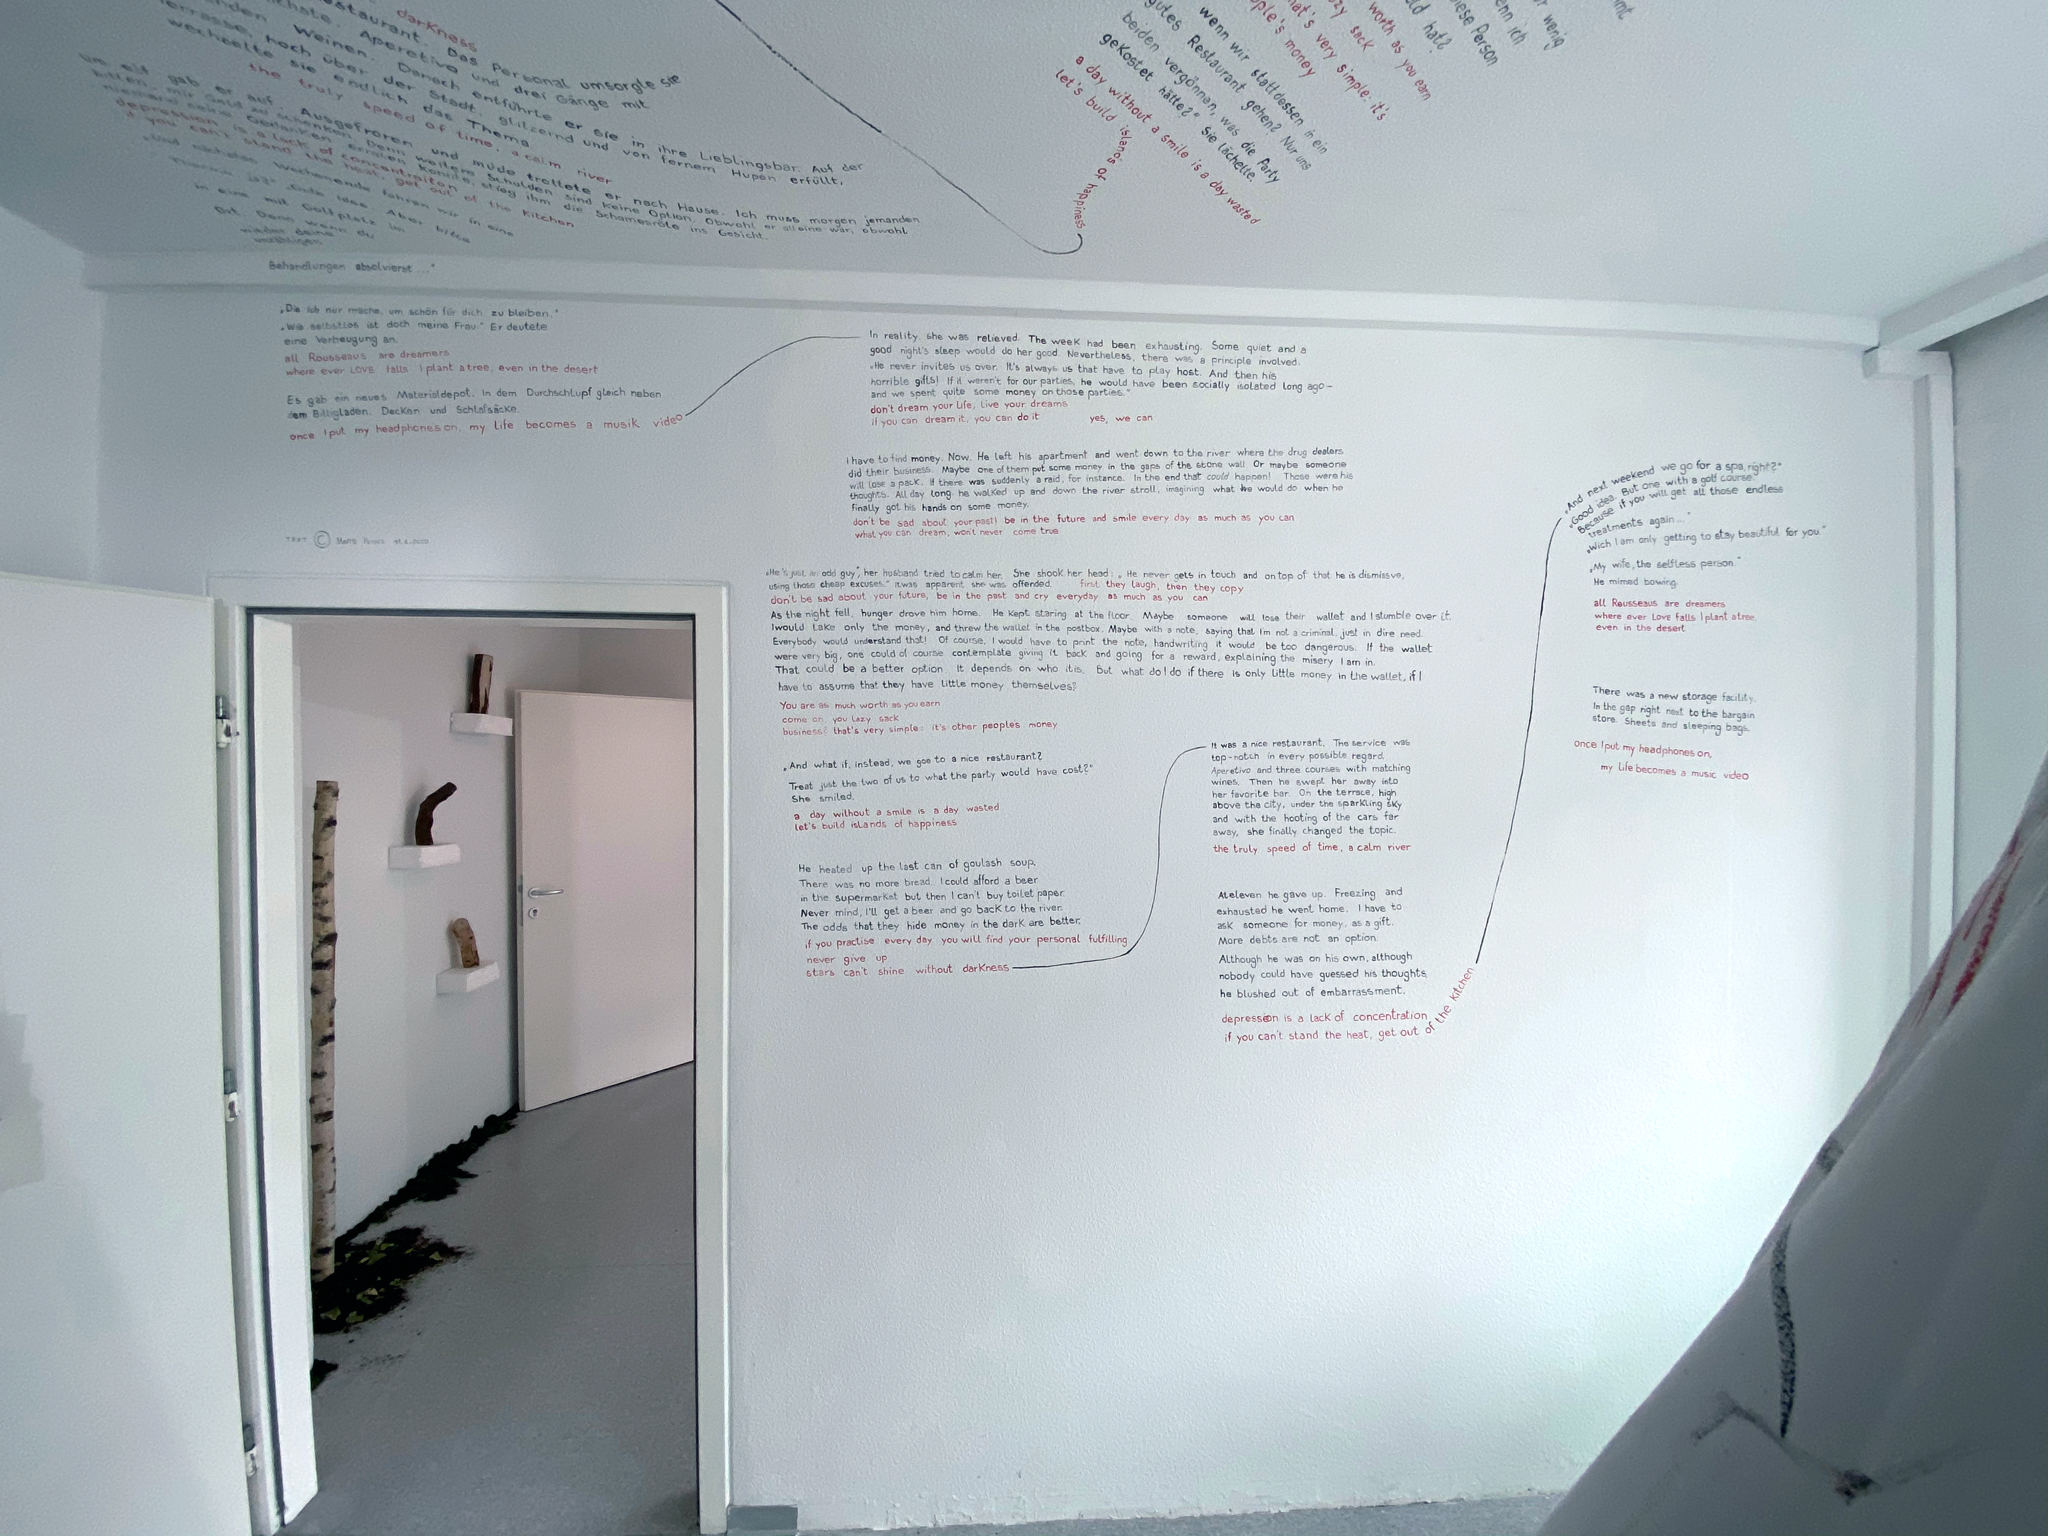 darkness
Restaurant. Das Personal umsorgte sie
Aperetivo und drei Gänge mit
Weinen. Danach entführte er sie in ihre Lieblingsbar. Auf der
Terrasse, hoch über der Stadt, glitzernd und von fernem Hupen erfüllt,
wechselte sie endlich das Thema
the truly speed of time, a calm river
um elf gab er auf. Ausgefroren und müde trottete er nach Hause. Ich muss morgen jemanden
bitten, mir Geld zu schenken. Denn weitere Schulden sind keine Option. Obwohl er alleine war, obwohl
niemand seine Gedanken erraten konnte, stieg ihm die Schamesröte ins Gesicht.
depression is a lack of concentration
if you can't stand the heat, get out of the kitchen
nächstes Wochenende fahren wir in eine
Idee. Aber bitte
in eine mit Golfplatz im
Ort. Denn wenn du
wieder deine
unzähligen
Behandlungen absolvierst ..."
„Die ich nur mache, um schön für dich zu bleiben."
„Wie selbstlos ist doch meine Frau." Er deutete
eine Verbeugung an.
all Rousseaus are dreamers
where ever LOVE falls I plant a tree, even in the desert
Es gab ein neues Materialdepot. In dem Durchschlupf gleich neben
dem Billigladen. Decken und Schlafsäcke.
once I put my headphones on, my Life becomes a musik video
TEXT ©
wenig
wenn ich
diese Person
hat?
worth as you earn
lazy sack
that's very simple: it's
people's money
wenn wir stattdessen in ein
gutes Restaurant gehen? Nur uns
beiden vergönnen, was die Party
gekostet hätte?" Sie lächelte.
a day without a smile is a day wasted
let's build islands of happiness
In reality, she was relieved. The week had been exhausting. Some quiet and a
good night's sleep would do her good. Nevertheless, there was a principle involved.
„He never invites us over. It's always us that have to play host. And then his
horrible gifts! If it weren't for our parties, he would have been socially isolated long ago –
and we spent quite some money on those parties."
don't dream your life, live your dreams
if you can dream it, you can do it yes, we can
I have to find money. Now. He left his apartment and went down to the river where the drug dealers
did their business. Maybe one of them put some money in the gaps of the stone wall. Or maybe someone
will lose a pack. If there was suddenly a raid, for instance. In the end that could happen! Those were his
thoughts. All day long he walked up and down the river stroll, imagining what he would do when he
finally got his hands on some money.
don't be sad about your past! be in the future and smile every day as much as you can
what you can dream, won't never come true
„He's just an odd guy", her husband tried to calm her. She shook her head: „He never gets in touch and on top of that he is dismissve,
using those cheap excuses." it was apparent she was offended. first they laugh, then they copy
don't be sad about your future, be in the past and cry everyday as much as you can
As the night fell, hunger drove him home. He kept staring at the floor. Maybe someone will lose their wallet and I stumble over it.
I would take only the money, and threw the wallet in the postbox. Maybe with a note, saying that I'm not a criminal, just in dire need.
Everybody would understand that! Of course, I would have to print the note, handwriting it would be too dangerous. If the wallet
were very big, one could of course contemplate giving it back and going for a reward, explaining the misery I am in.
That could be a better option. It depends on who it is. But what do I do if there is only little money in the wallet, if I
have to assume that they have little money themselves?
You are as much worth as you earn
come on, you lazy sack
business? that's very simple: it's other peoples money
„And what if, instead, we goe to a nice restaurant?
Treat just the two of us to what the party would have cost?"
She smiled.
a day without a smile is a day wasted
let's build islands of happiness
He heated up the last can of goulash soup.
There was no more bread. I could afford a beer
in the supermarket but then I can't buy toilet paper.
Never mind, I'll get a beer and go back to the river.
The odds that they hide money in the dark are better.
if you practise every day you will find your personal fulfilling
never give up
stars can't shine without darkness
It was a nice restaurant. The service was
top-notch in every possible regard.
Aperetivo and three courses with matching
wines. Then he swept her away into
her favorite bar. On the terrace, high
above the city, under the sparkling sky
and with the hooting of the cars far
away, she finally changed the topic.
the truly speed of time, a calm river
At eleven he gave up. Freezing and
exhausted he went home. I have to
ask someone for money, as a gift.
More debts are not an option.
Although he was on his own, although
nobody could have guessed his thoughts,
he blushed out of embarrassment.
depression is a lack of concentration
if you can't stand the heat, get out of the kitchen
„And next weekend we go for a spa, right?"
„Good idea. But one with a golf course.
Because if you will get all those endless
treatments again ..."
„Wich I am only getting to stay beautiful for you."
„My wife, the selfless person."
He mimed bowing.
all Rousseaus are dreamers
where ever Love falls I plant a tree,
even in the desert
There was a new storage facility.
In the gap right next to the bargain
store. Sheets and sleeping bags.
once I put my headphones on,
my life becomes a music video